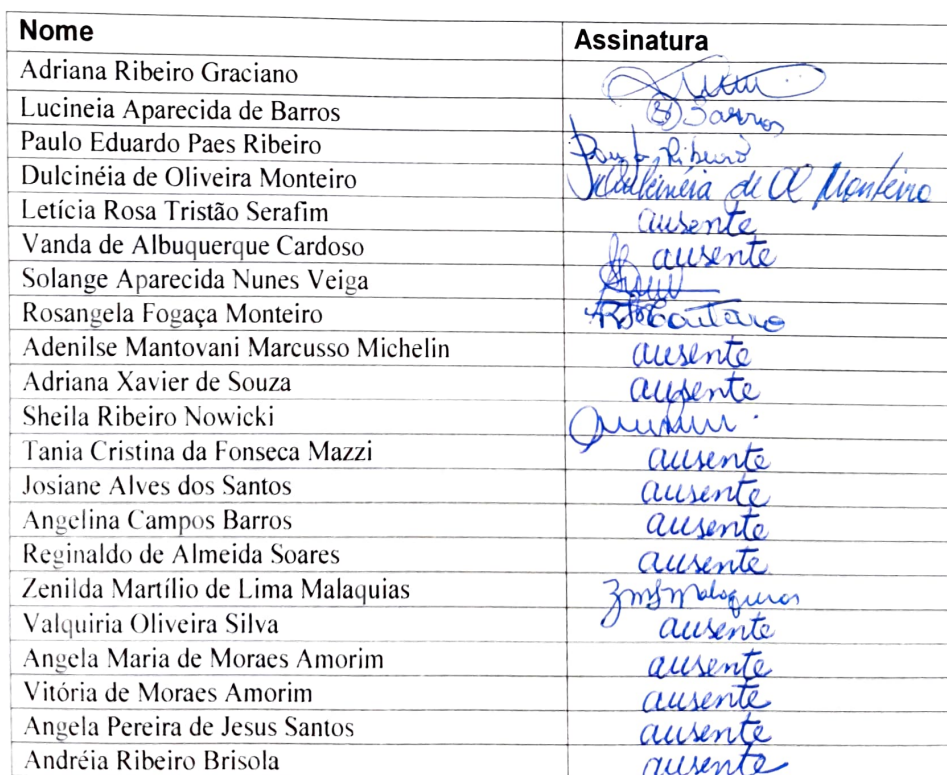 Nome Assinatura
Adriana Ribeiro Graciano
Lucineia Aparecida de Barros Barros
Paulo Eduardo Paes Ribeiro Paulo Ribeiro
Dulcinéia de Oliveira Monteiro Dulcinéia de Ol Monteiro
Letícia Rosa Tristão Serafim ausente
Vanda de Albuquerque Cardoso ausente
Solange Aparecida Nunes Veiga
Rosangela Fogaça Monteiro
Adenilse Mantovani Marcusso Michelin ausente
Adriana Xavier de Souza ausente
Sheila Ribeiro Nowicki
Tania Cristina da Fonseca Mazzi ausente
Josiane Alves dos Santos ausente
Angelina Campos Barros ausente
Reginaldo de Almeida Soares ausente
Zenilda Martílio de Lima Malaquias ZmLMalaquias
Valquiria Oliveira Silva ausente
Angela Maria de Moraes Amorim ausente
Vitória de Moraes Amorim ausente
Angela Pereira de Jesus Santos ausente
Andréia Ribeiro Brisola ausente